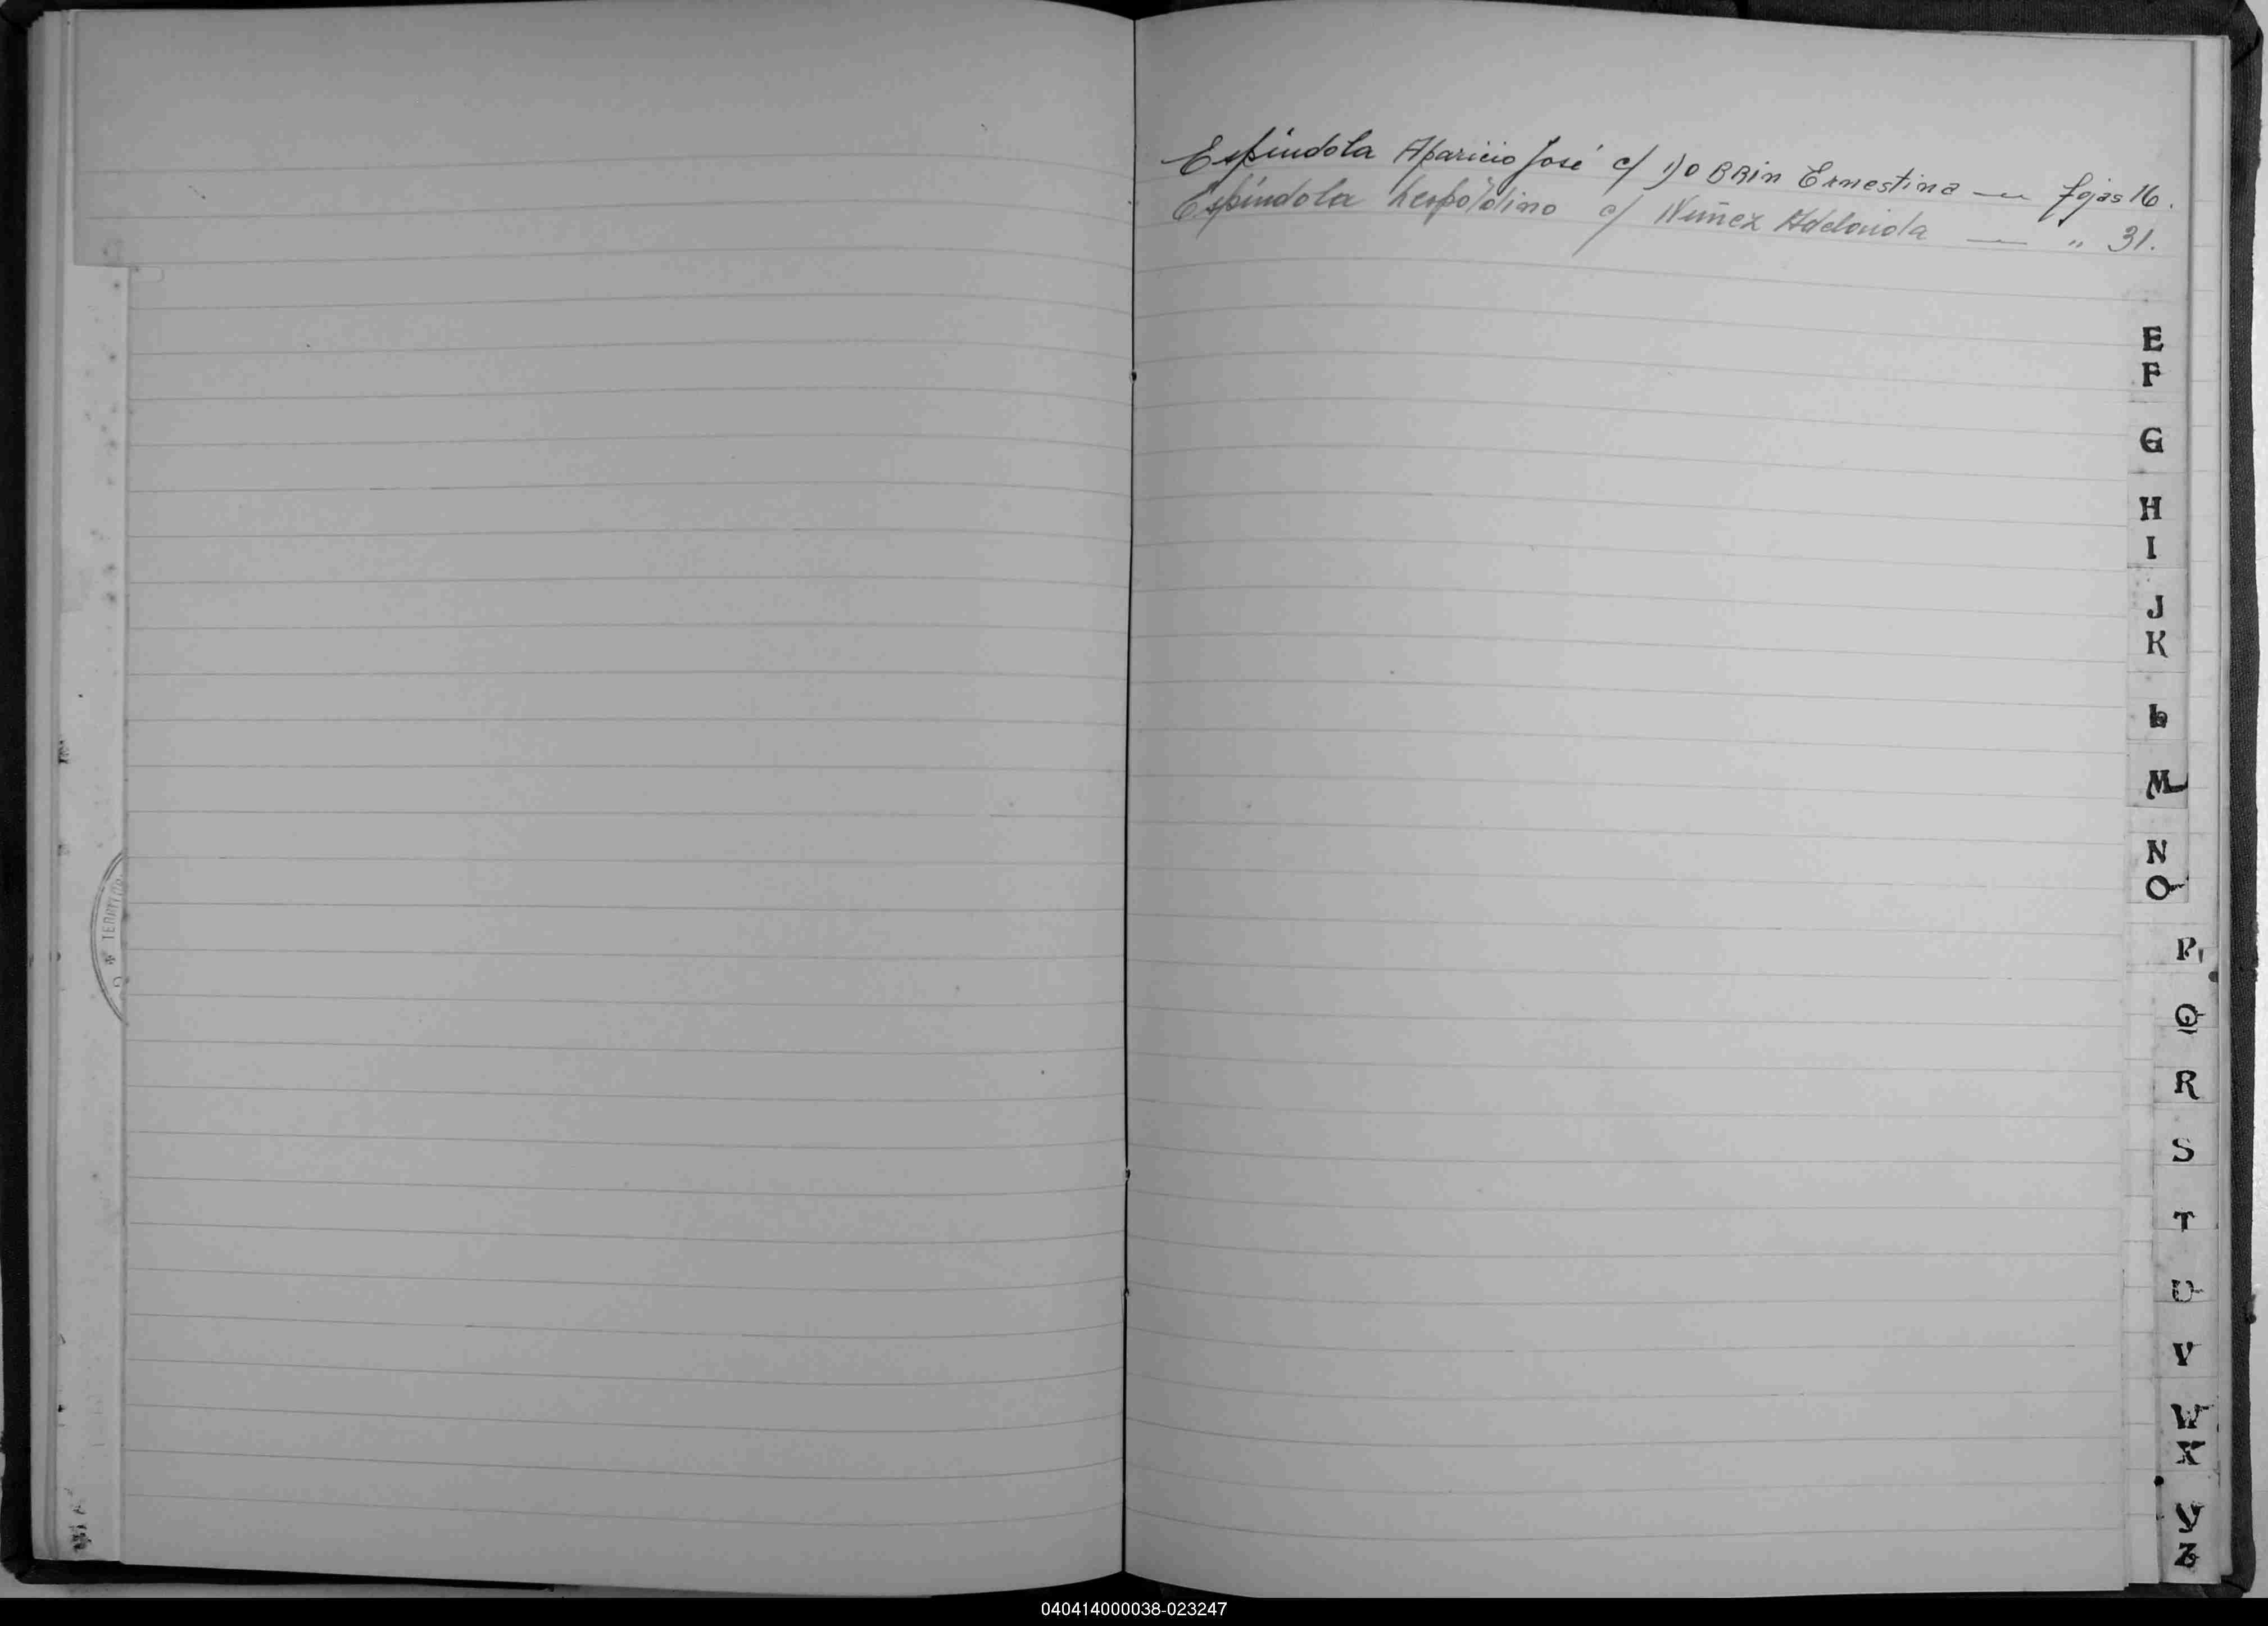 Espíndola Aparicio José c/ DOBRin Ernestina — fojas 16.
Espíndola Leopoldino c/ Nuñez Adelaida — " 31.
E
F
G
H
I
J
K
L
M
N
O
P
Q
R
S
T
U
V
W
X
Y
Z
040414000038-023247